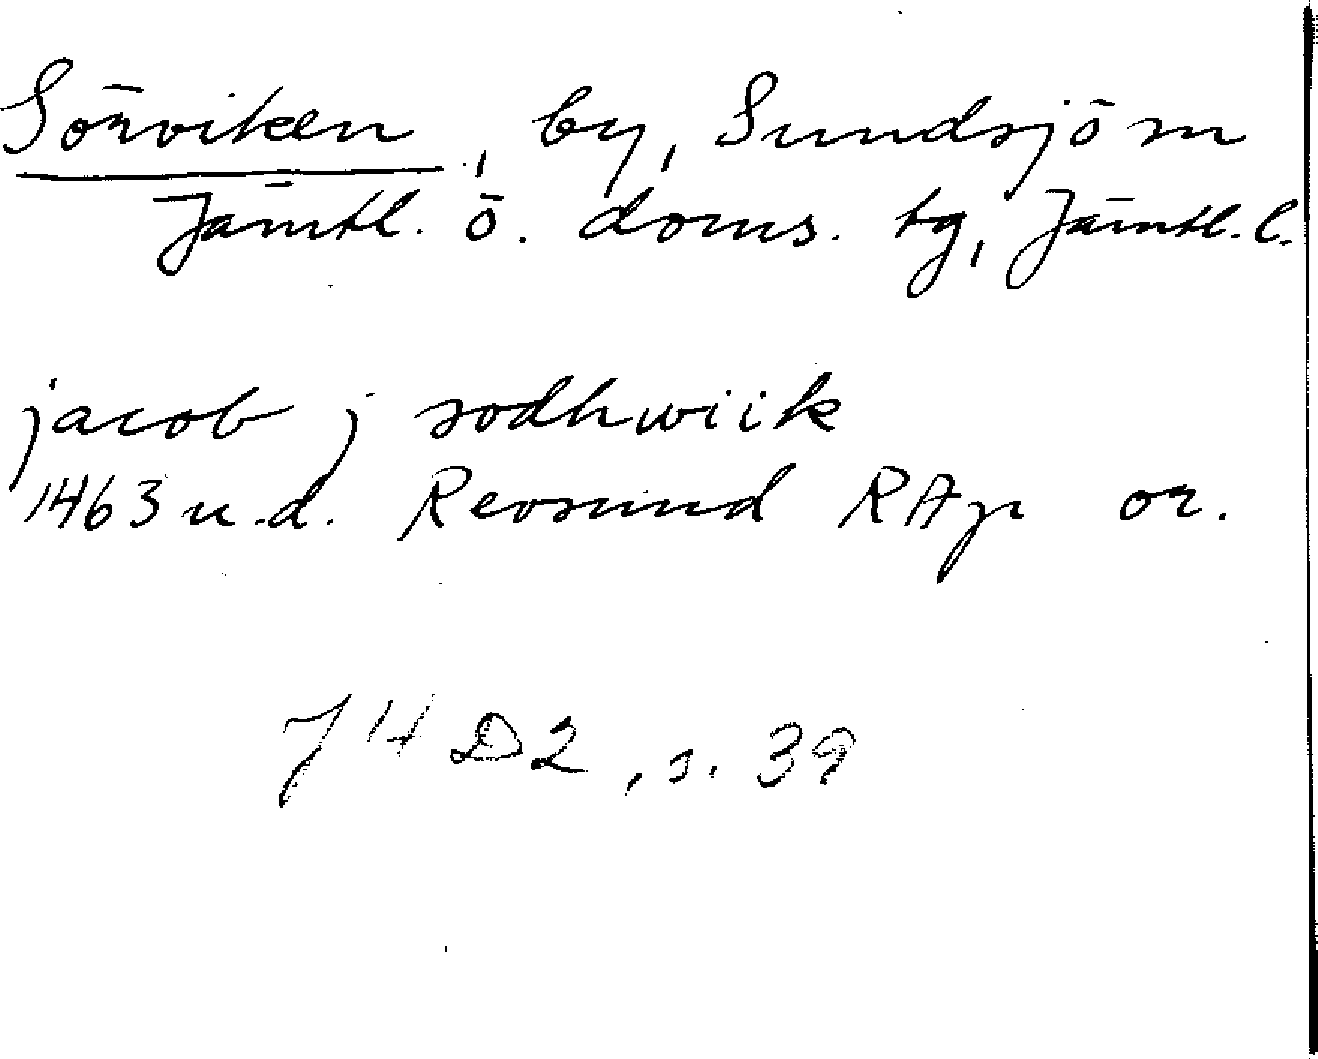 Sörviken, by, Sundsjö sn
Jämtl. ö. doms. tg, Jämtl. l.
jacob j sodhwiik
1463 u.d. Revsund RAp or.
J14 D2, s. 39